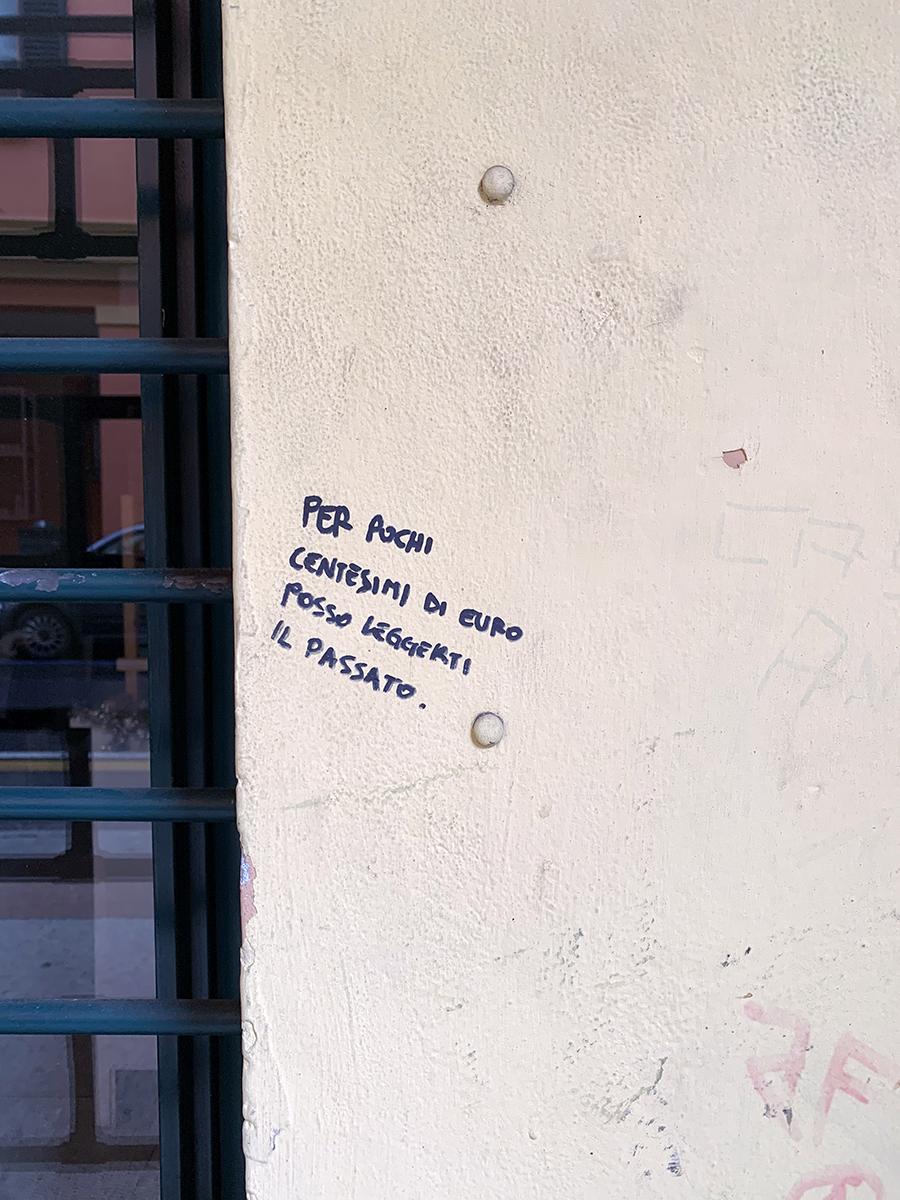 PER POCHI
CENTESIMI DI EURO
POSSO LEGGERTI
IL PASSATO.